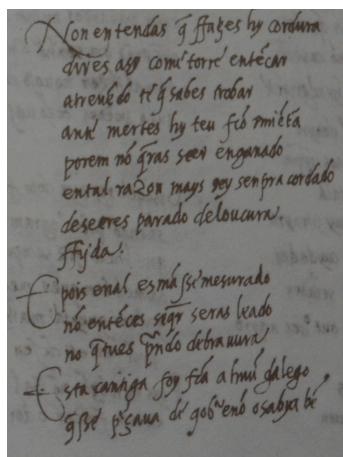 Non entendas q̃ ffazes hy cordura
dizes asy come torre entẽcar
atreuẽdo te q̃ sabes trobar
ante mertes hy teu
porem nõ q̃ras seer enganado
ental razon mays sey senpra cordado
deseeres parado deloucura.
ffijda.
E pois enal es mãsse mesurado
nõ entẽces seras leado
no q̃ tues debrauura
Esta cantiga foy fc̃a a hũu galego
q̃ sse de osabya bẽ